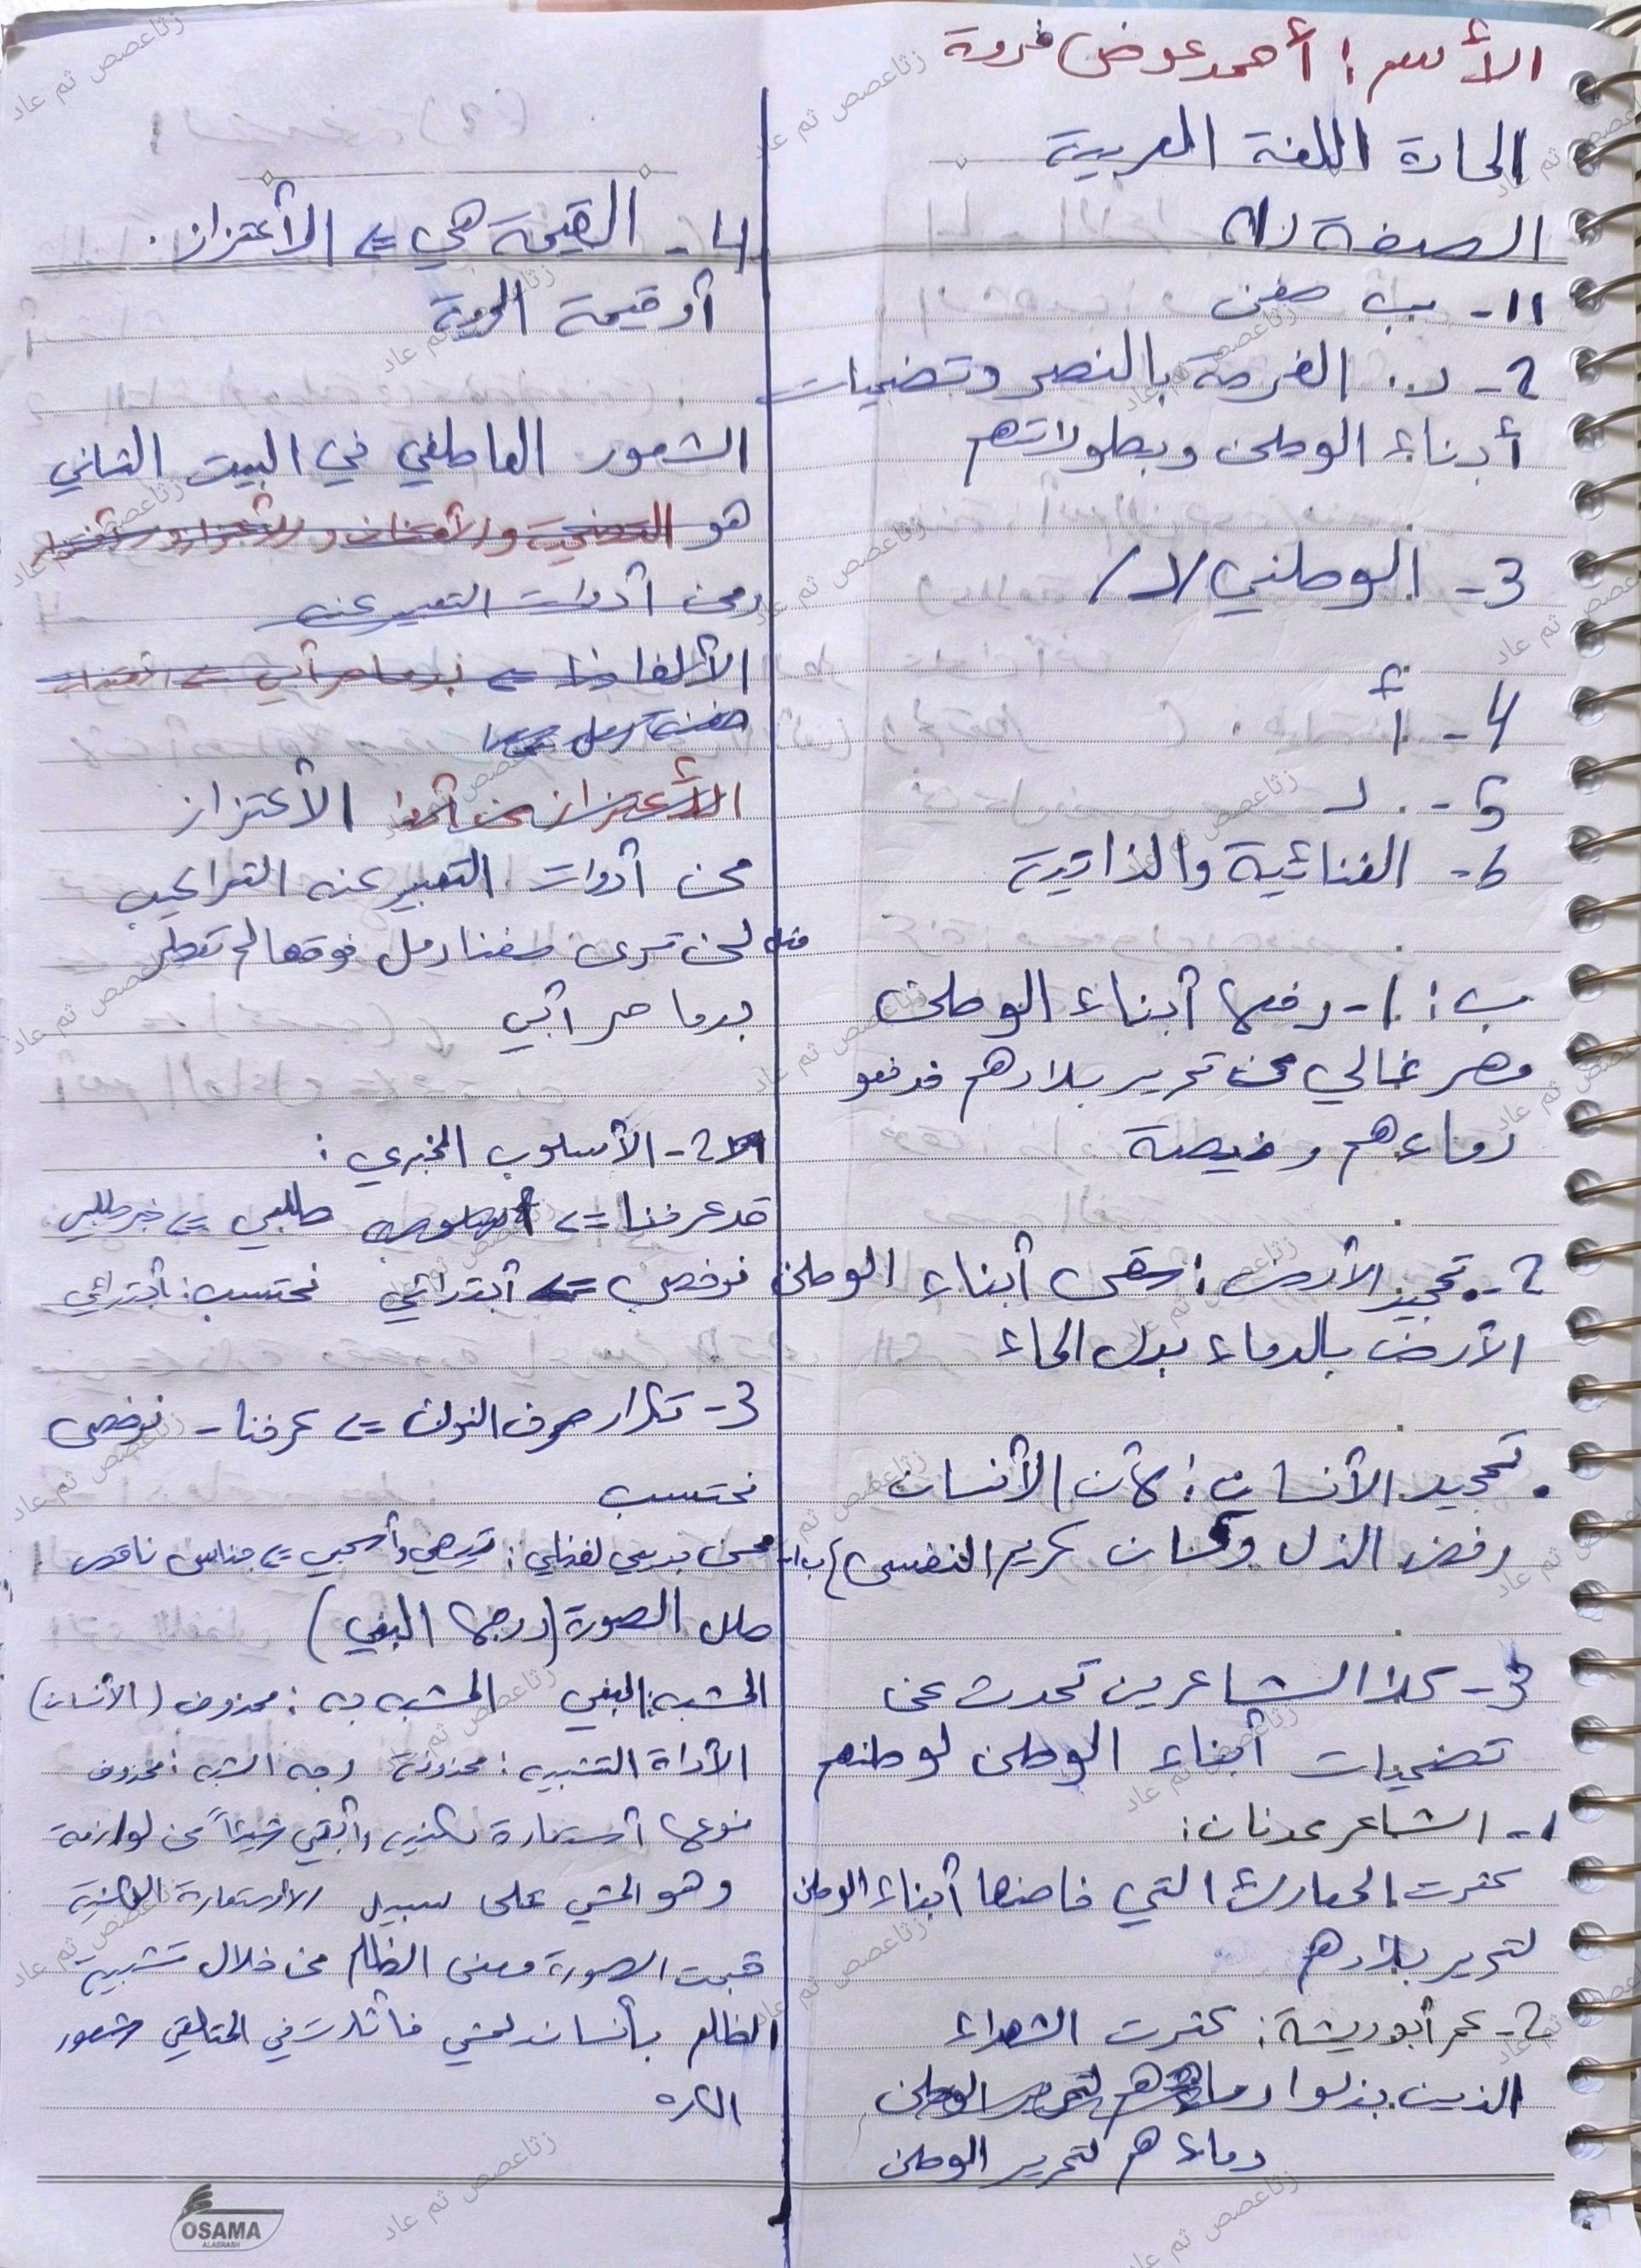 الأسم : أحمد عوض فروة
المادة اللغة العربية
الصفحة (1)
11- ب صفن
2- د. الفرحة بالنصر وتضحيات
أبناء الوطن وبطولاتهم
3- الوطني /د/
4- أ
5- د
6- الغنائية والذاتية
ب : 1- دفعها أبناء الوطن
مهر غالي من تحرير بلادهم فدفعو
دماءهم رخيصة
2- تمجيد الأرض : سقى أبناء الوطن
الأرض بالدماء بدل الماء
. تمجيد الأنسان : كأن الأنسان
رفض الذل وكان كريم النفس
3- كلا الشاعرين تحدث عن
تضحيات أبناء الوطن لوطنهم
1- الشاعر عدنان :
كثرت المعارك التي خاضها أبناء الوطن
لتحرير بلادهم
2- عمر أبو ريشة : كثرت الشهداء
الذين بذلوا
دماءهم لتحرير الوطن
4- القيمة هي => الأعتزاز .
أو قيمة الحرية
الشعور العاطفي في البيت الثاني
هو
ومن أدوات التعبير عنه
الألفاظ
الأعتزاز
من أدوات التعبير عنه التراكيب
مثل لن ترى حفنة رمل فوقها لم تعطر
بدما حر أبي
2- الأسلوب الخبري :
قد عرفنا => طلبي => خبر طلبي
نرخص => أبتدائي نحتسب : أبتدائي
3- تكرار حرف النون => عرفنا - نرخص
نحتسب
ب 1- محسن بديعي لفظي : ترهبي وأسحبي => جناس ناقص
حلل الصورة (درجها البغي)
المشبه : البغي المشبه به : محذوف (الأنسان)
الأداة التشبيه : محذوفة وجه الشبه : محذوف
نوعها أستعارة مكنية وأبقي شيئاً من لوازمه
وهو المشي على سبيل الأستعارة المكنية
قبحت الصورة معنى الظلم من خلال تشبيه
الظالم بأنسان يمشي فأثارت في المتلقي شعور
الكره
OSAMA
ALAERASH
زثاعصص ثم عاد